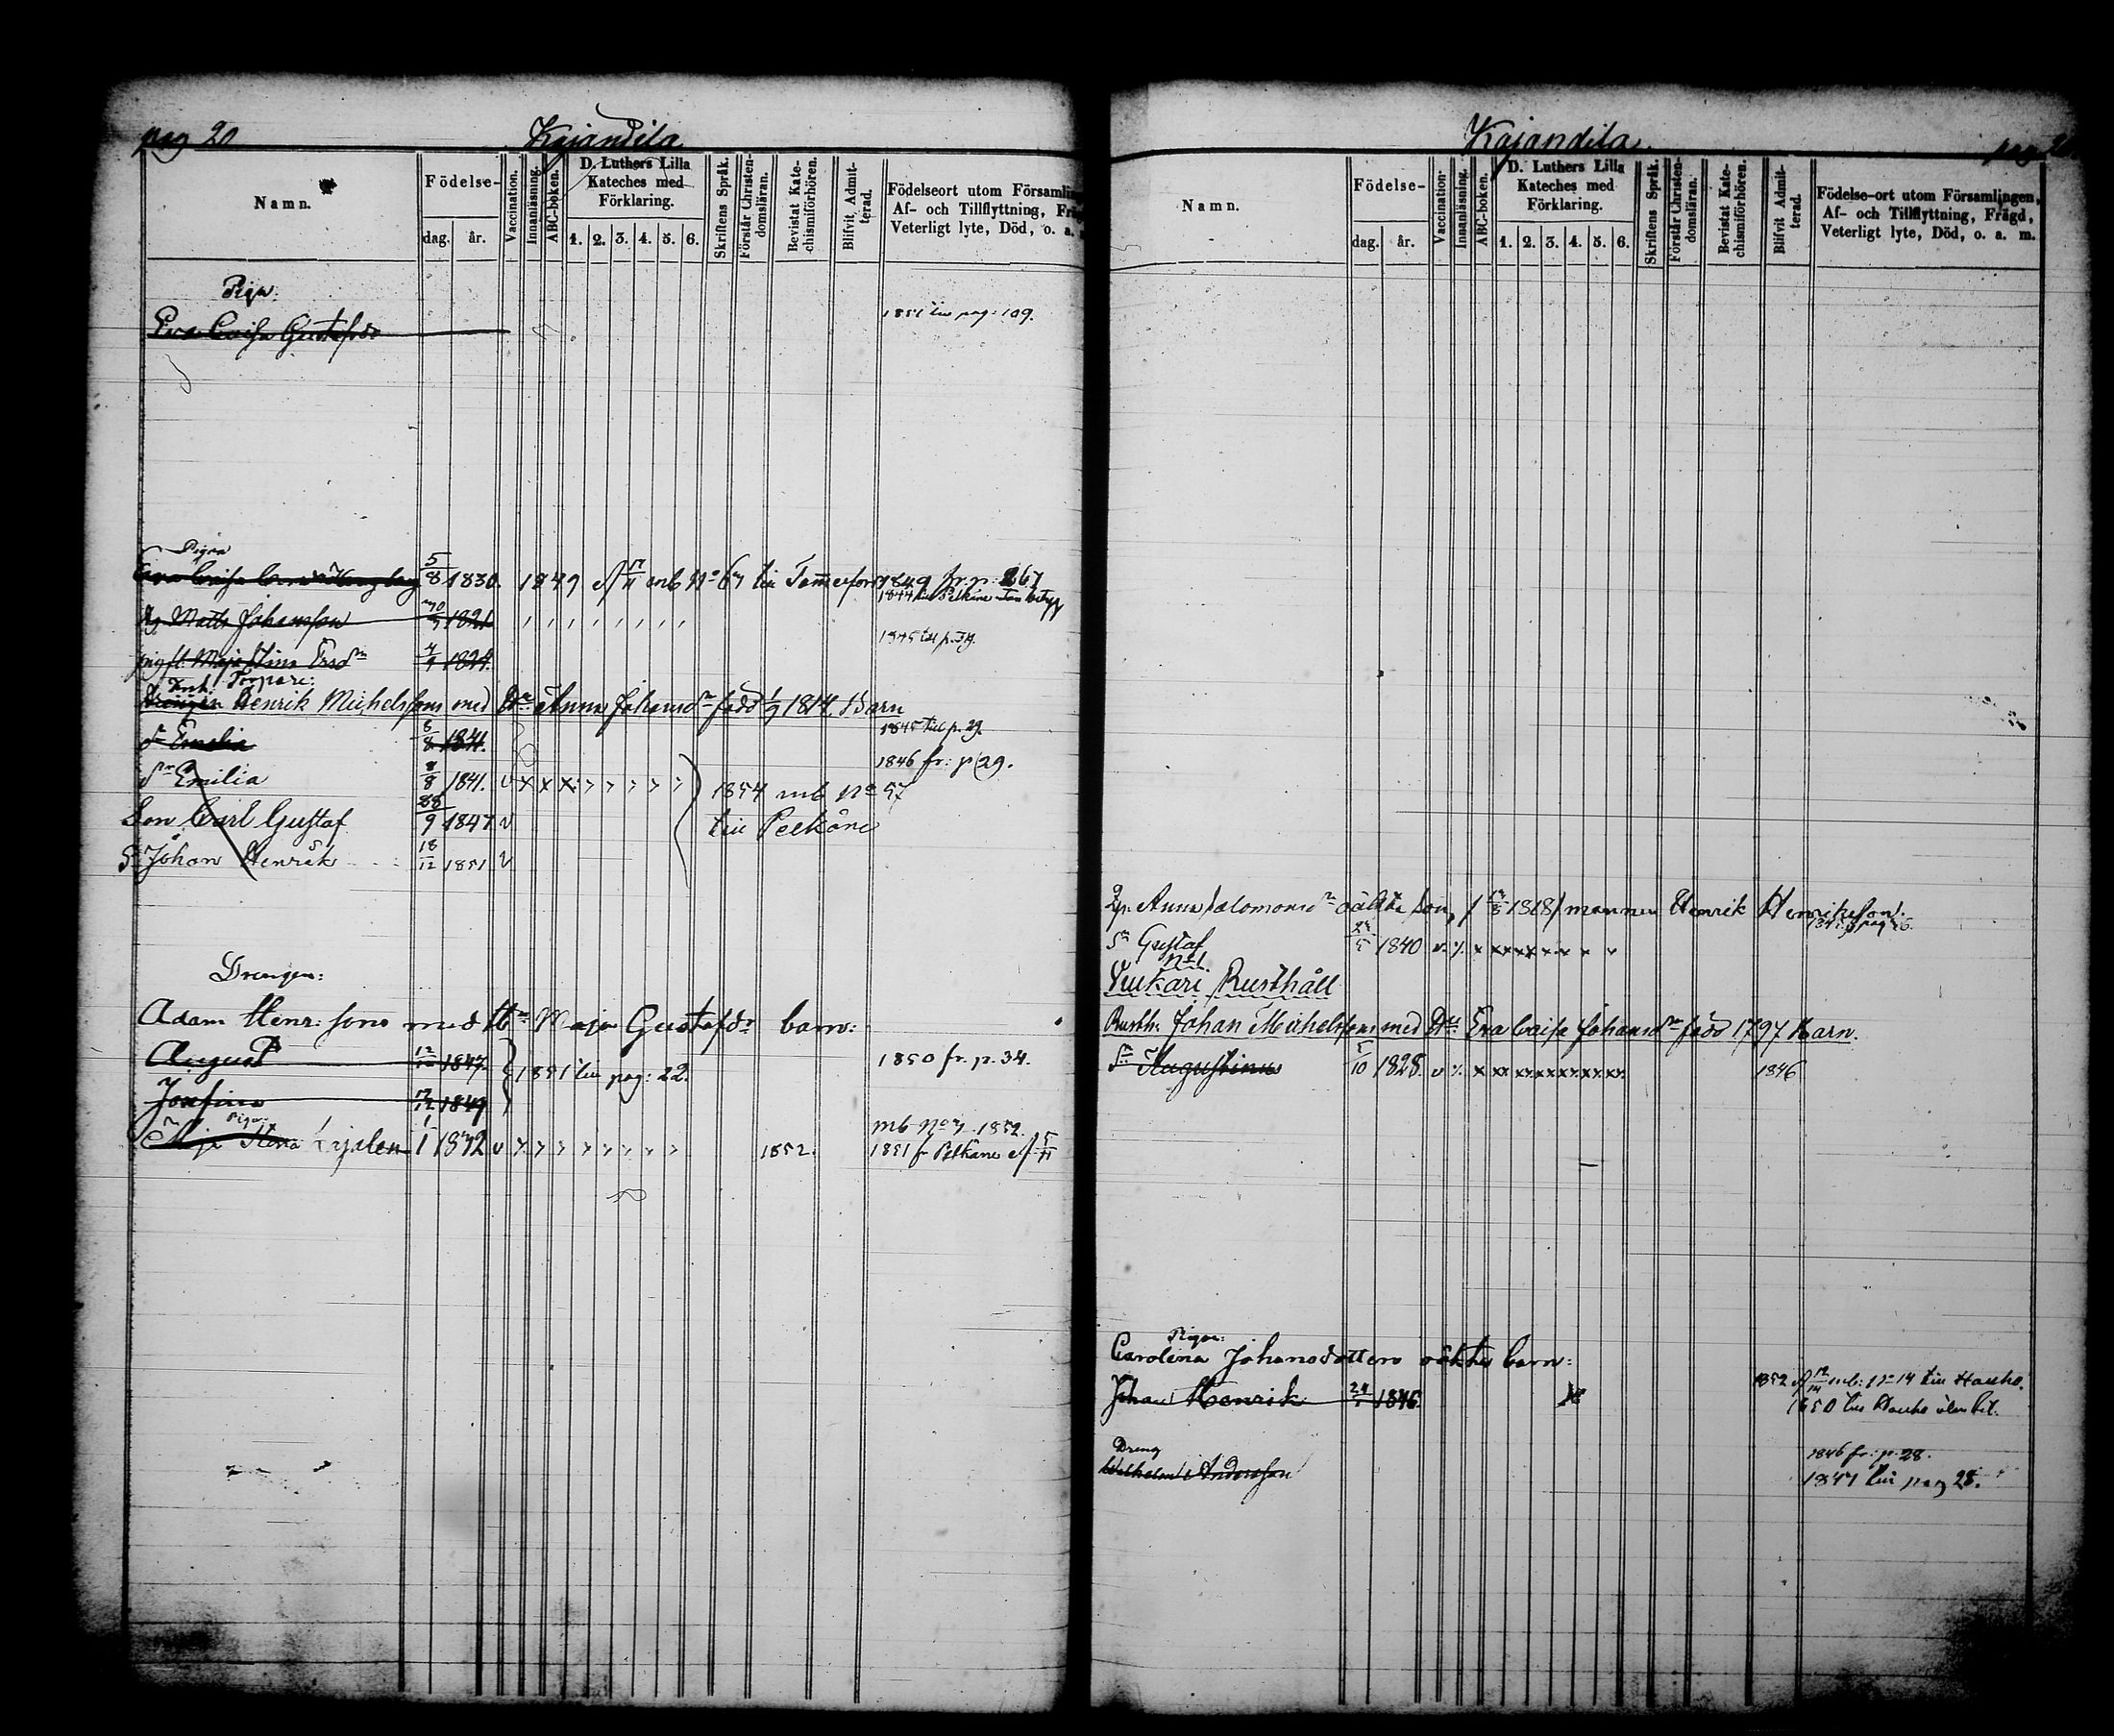 pag 20
Kajandila
Namn.
Födelse-
dag. år.
Vaccination.
Innanläsning.
ABC-boken.
D. Luthers Lilla
Kateches med
Förklaring.
1. 2. 3. 4. 5. 6.
Skriftens Språk.
Förstår Christen-
domsläran.
Bevistat Kate-
chismiförhören.
Blifvit Admit-
terad.
Födelseort utom Församlin
Af- och Tillflyttning, Fräg
Veterligt lyte, Död, o. a.
Piga:
Eva Caisa Gustafsdr 1851 till pag: 109.
Pigan
Eva Caisa 5/8 1830. 1849 mb No 67 1849 fr. p. 267
1844 till Pelkäne utan betyg
Matts Johansson 1821
1845 till p.
Maja Stina Ersdr 4/9 1824.
Torpare:
Henrik Michelsson med Hu Anna Johansdr född 1/9 1814. Barn
Dr Emelia 8/8 1841. 1845 till p. 29.
1846 fr: p 29.
Dr Emilia 8/8 1841. v x x x 1854 mb No 57
Son Carl Gustaf 9 1847 v till Pelkäne
Sn Johan Henrik 18/12 1851 v
Drengen:
Adam Henr: sons med Hu Maja Gustafsdr barn:
August 1847 1851 till pag: 22. 1850 fr. p. 34.
Josefina 1849
Piga: mb No 7 1852.
Maja Stina 1 1832 v 1852. 1851 fr Pelkäne
Kajandila
pag 20
Namn.
Födelse-
dag. år.
Vaccination.
Innanläsning.
ABC-boken.
D. Luthers Lilla
Kateches med
Förklaring.
1. 2. 3. 4. 5. 6.
Skriftens Språk.
Förstår Christen-
domsläran.
Bevistat Kate-
chismiförhören.
Blifvit Admit-
terad.
Födelse-ort utom Församlingen,
Af- och Tillflyttning, Frägd,
Veterligt lyte, Död, o. a. m.
Anna Salomonsdr oäkta son, 1818 mannen Henrik Henriksson.
Sn Gustaf 1840
No 1.
Rusthåll
Rusth. Johan Michelsson med Hu Eva Caisa Johansdr född 1797 Barn.
Dr Augustina 5/10 1828. v 1846
Pigan:
Carolina Johansdotters oäkta barn:
1852 mb: No 14 till Hauho.
Johan Henrik 1846. 1850 till Hauho utan bet.
Dreng 1846 fr: p. 28.
Wilhelm Andersson 1847 till pag 28.